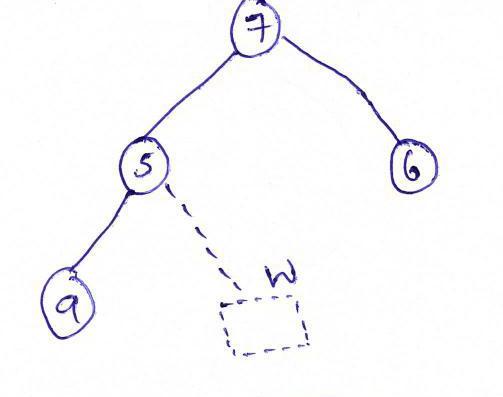 7
5
6
9
W